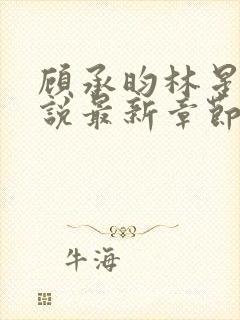 顾承昀林是
說最新章節
牛海